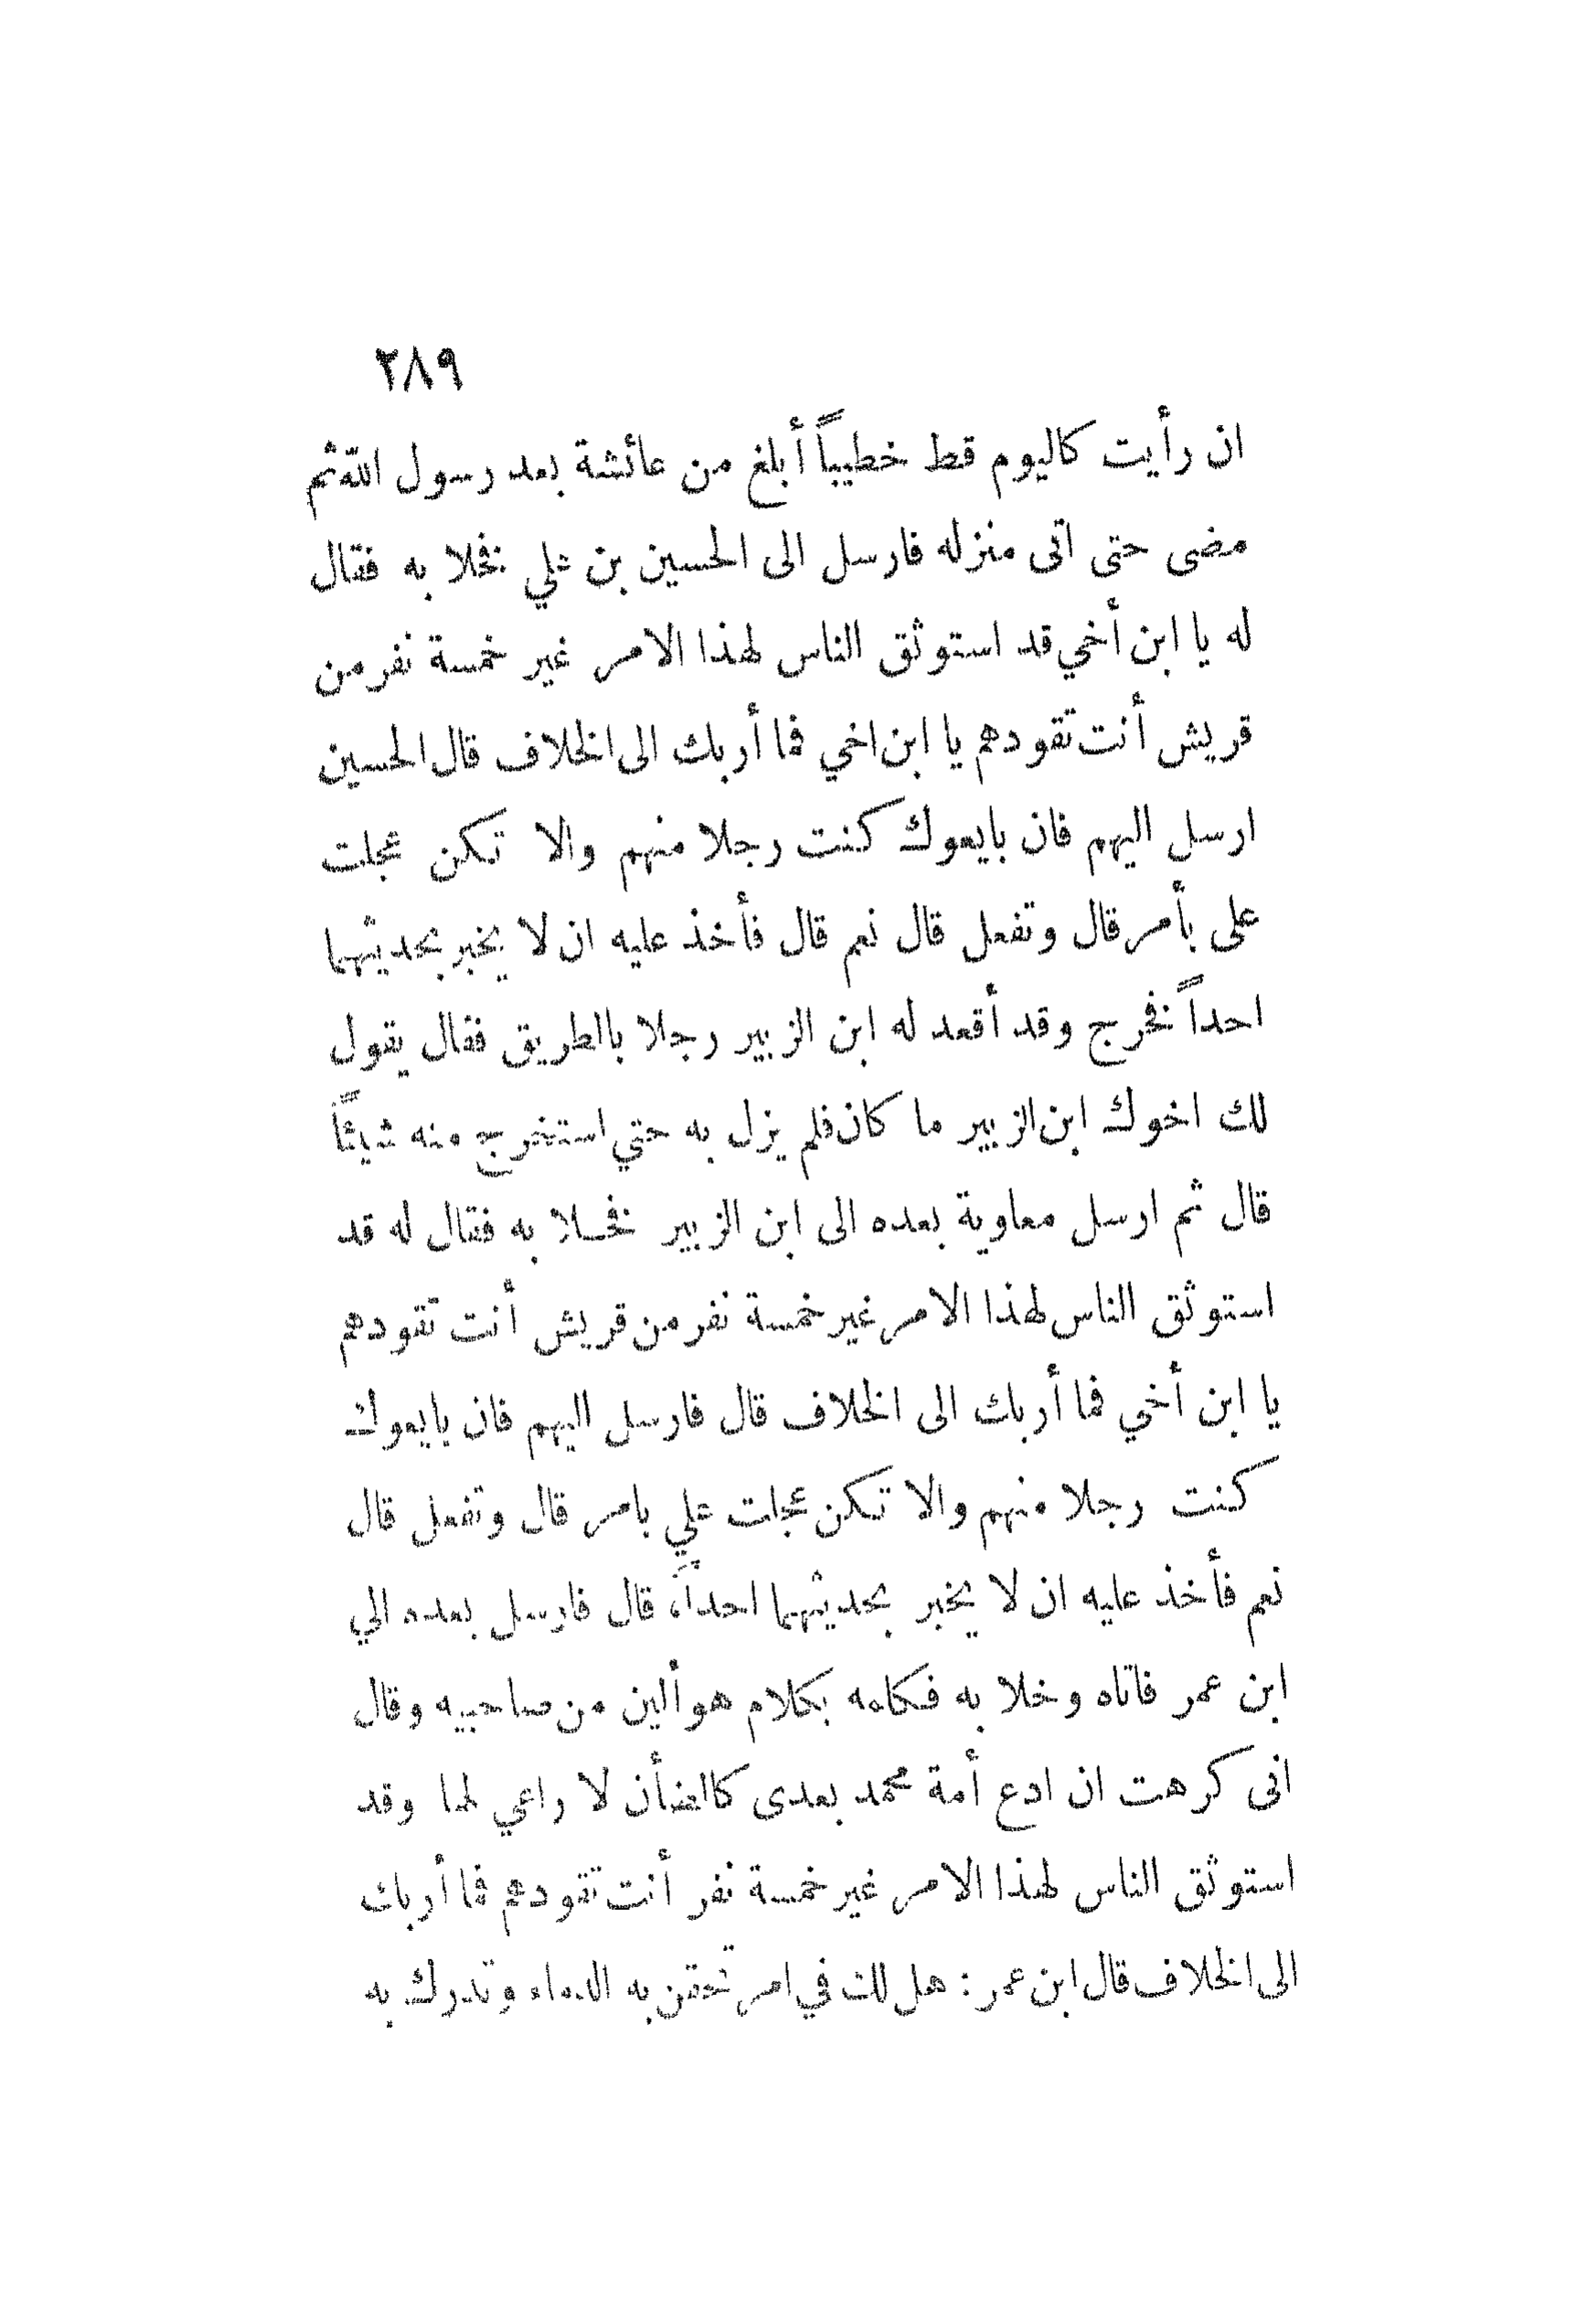 ٢٨٩
ان رأيت كاليوم قط خطيباً أبلغ من عائشة بعد رسول الله ثم
مضى حتى اتى منزله فارسل الى الحسين بن علي فخلا به فقال
له يا ابن أخي قد استوثق الناس لهذا الامر غير خمسة نفر من
قريش أنت تقودهم يا ابن اخي فما أربك الى الخلاف قال الحسين
ارسل اليهم فان بايعوك كنت رجلا منهم والا تكن عجلت
على بأمر قال وتفعل قال نعم قال فأخذ عليه ان لا يخبر بحديثهما
احداً فخرج وقد أقعد له ابن الزبير رجلا بالطريق فقال يقول
لك اخوك ابن الزبير ما كان فلم يزل به حتي استخرج منه شيئاً
قال ثم ارسل معاوية بعده الى ابن الزبير فخلا به فقال له قد
استوثق الناس لهذا الامر غير خمسة نفر من قريش أنت تقودهم
يا ابن أخي فما أربك الى الخلاف قال فارسل اليهم فان بايعوك
كنت رجلا منهم والا تكن عجلت علي بامر قال وتفعل قال
نعم فأخذ عليه ان لا يخبر بحديثهما احداً، قال فارسل بعده الي
ابن عمر فاتاه وخلا به فكلمه بكلام هو ألين من صاحبيه وقال
انى كرهت ان ادع أمة محمد بعدى كالضأن لا راعي لها وقد
استوثق الناس لهذا الامر غير خمسة نفر أنت تقودهم فما أربك
الى الخلاف قال ابن عمر : هل لك في امر تحقن به الدماء وتدرك به